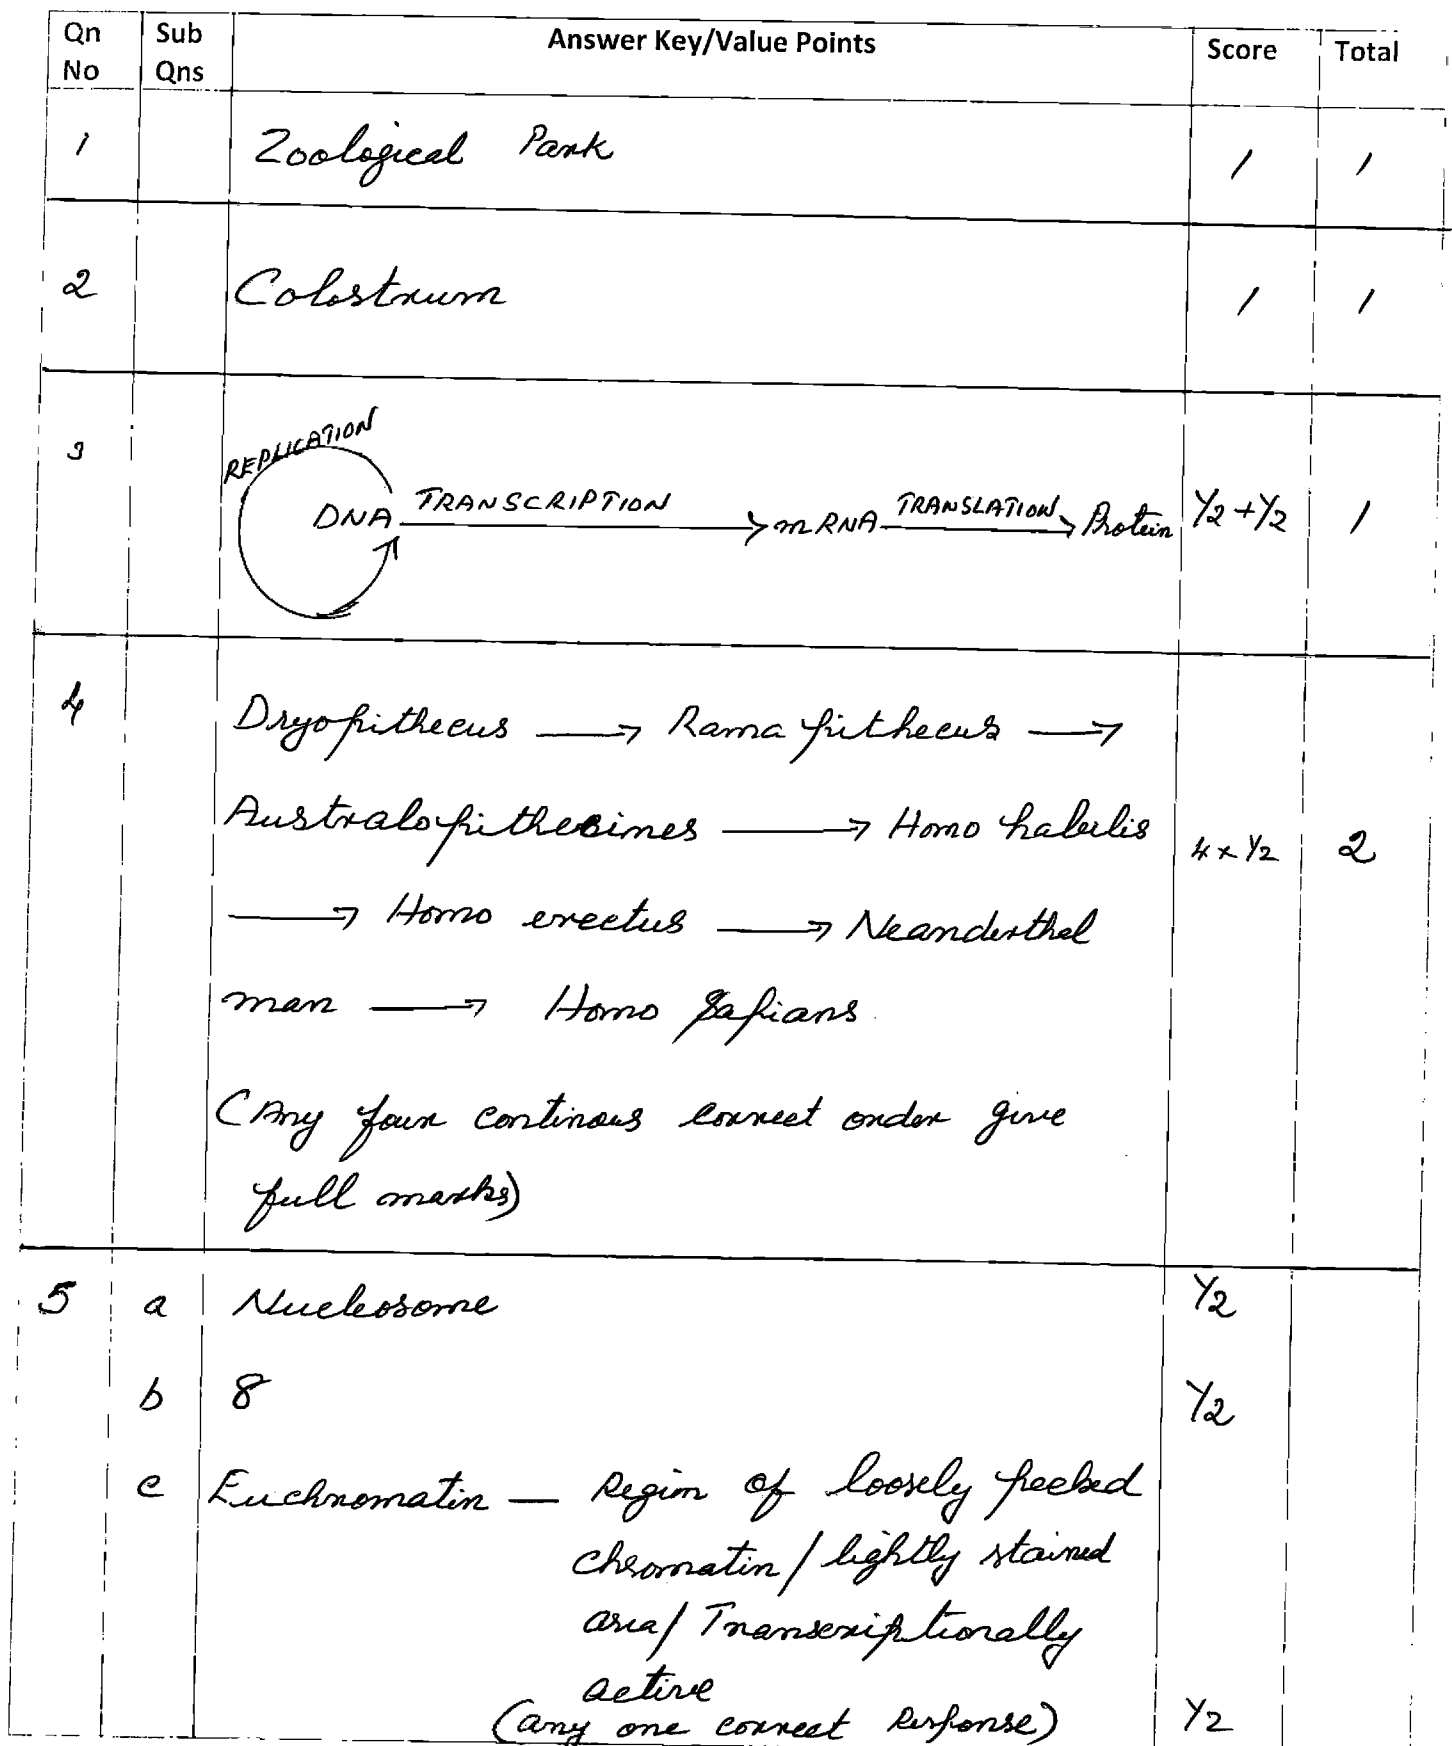 Qn No Sub Qns Answer Key/Value Points Score Total
1 Zoological Park 1 1
2 Colostrum 1 1
3 REPLICATION
DNA TRANSCRIPTION mRNA TRANSLATION Protein 1/2+1/2 1
4 Dryopithecus → Rama pithecus →
Australopithecines → Homo habilis 4 x 1/2 2
→ Homo erectus → Neanderthal
man → Homo Sapians
(Any four continous correct order give
full marks)
5 a Nucleosome 1/2
b 8 1/2
c Euchromatin — Region of loosely packed
chromatin / lightly stained
area / Transcriptionally
active
(any one correct Response) 1/2